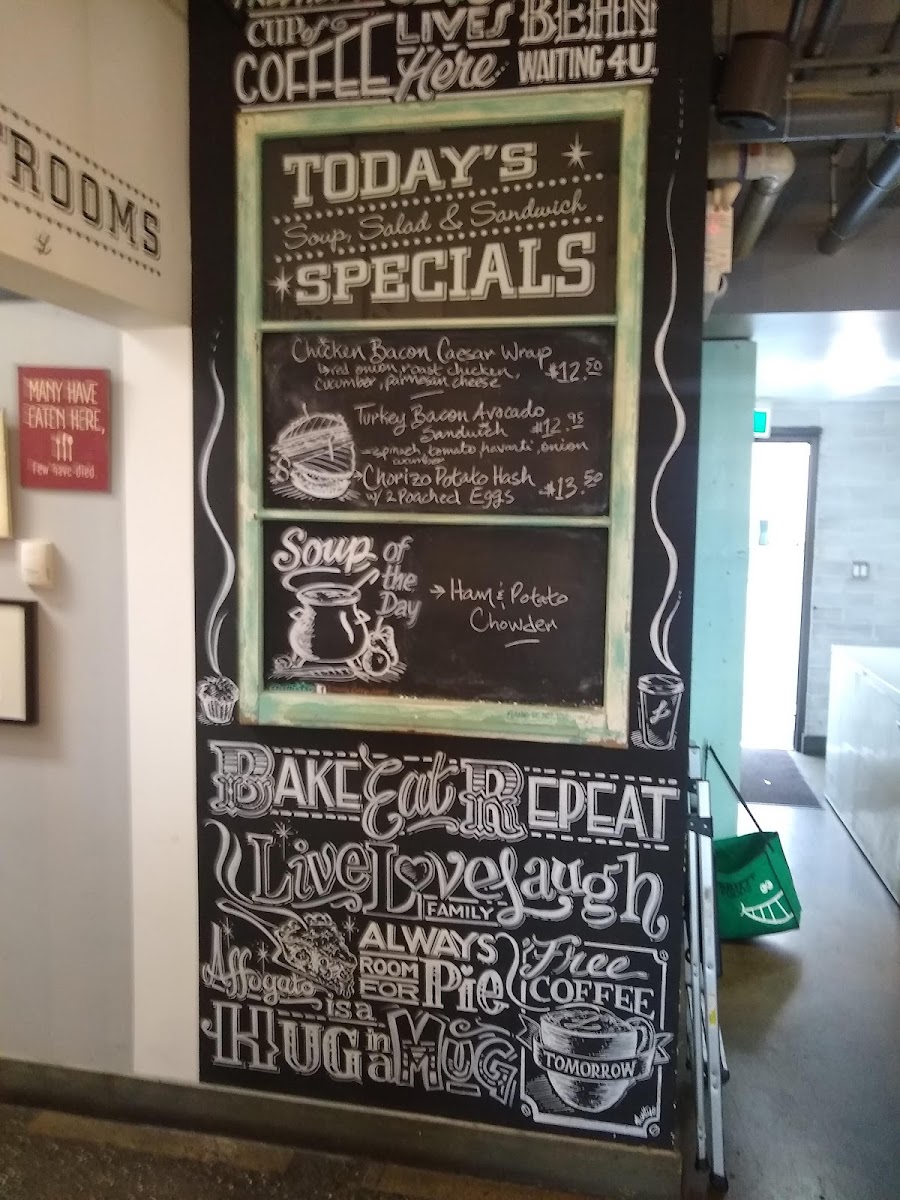 CUP of
COFFEE
LIVES
Here...
BEHN
WAITING 4U.
ROOMS
MANY HAVE
EATEN HERE,
Few have died.
TODAY'S
Soup, Salad & Sandwich
SPECIALS
Chicken Bacon Caesar Wrap
onion, roast chicken, $12.50
cucumber, parmesan cheese
Turkey Bacon Avocado
Sandwich $12.95
spinach, tomato, havarti, onion
cucumber
Chorizo Potato Hash
w/ 2 Poached Eggs $13.50
Soup of
the
Day
Ham & Potato
Chowder
BAKE Eat REPEAT
Live Love Laugh
FAMILY
Affogato
is a
HUG in a MUG
ALWAYS
ROOM
FOR Pie
Free
COFFEE
TOMORROW